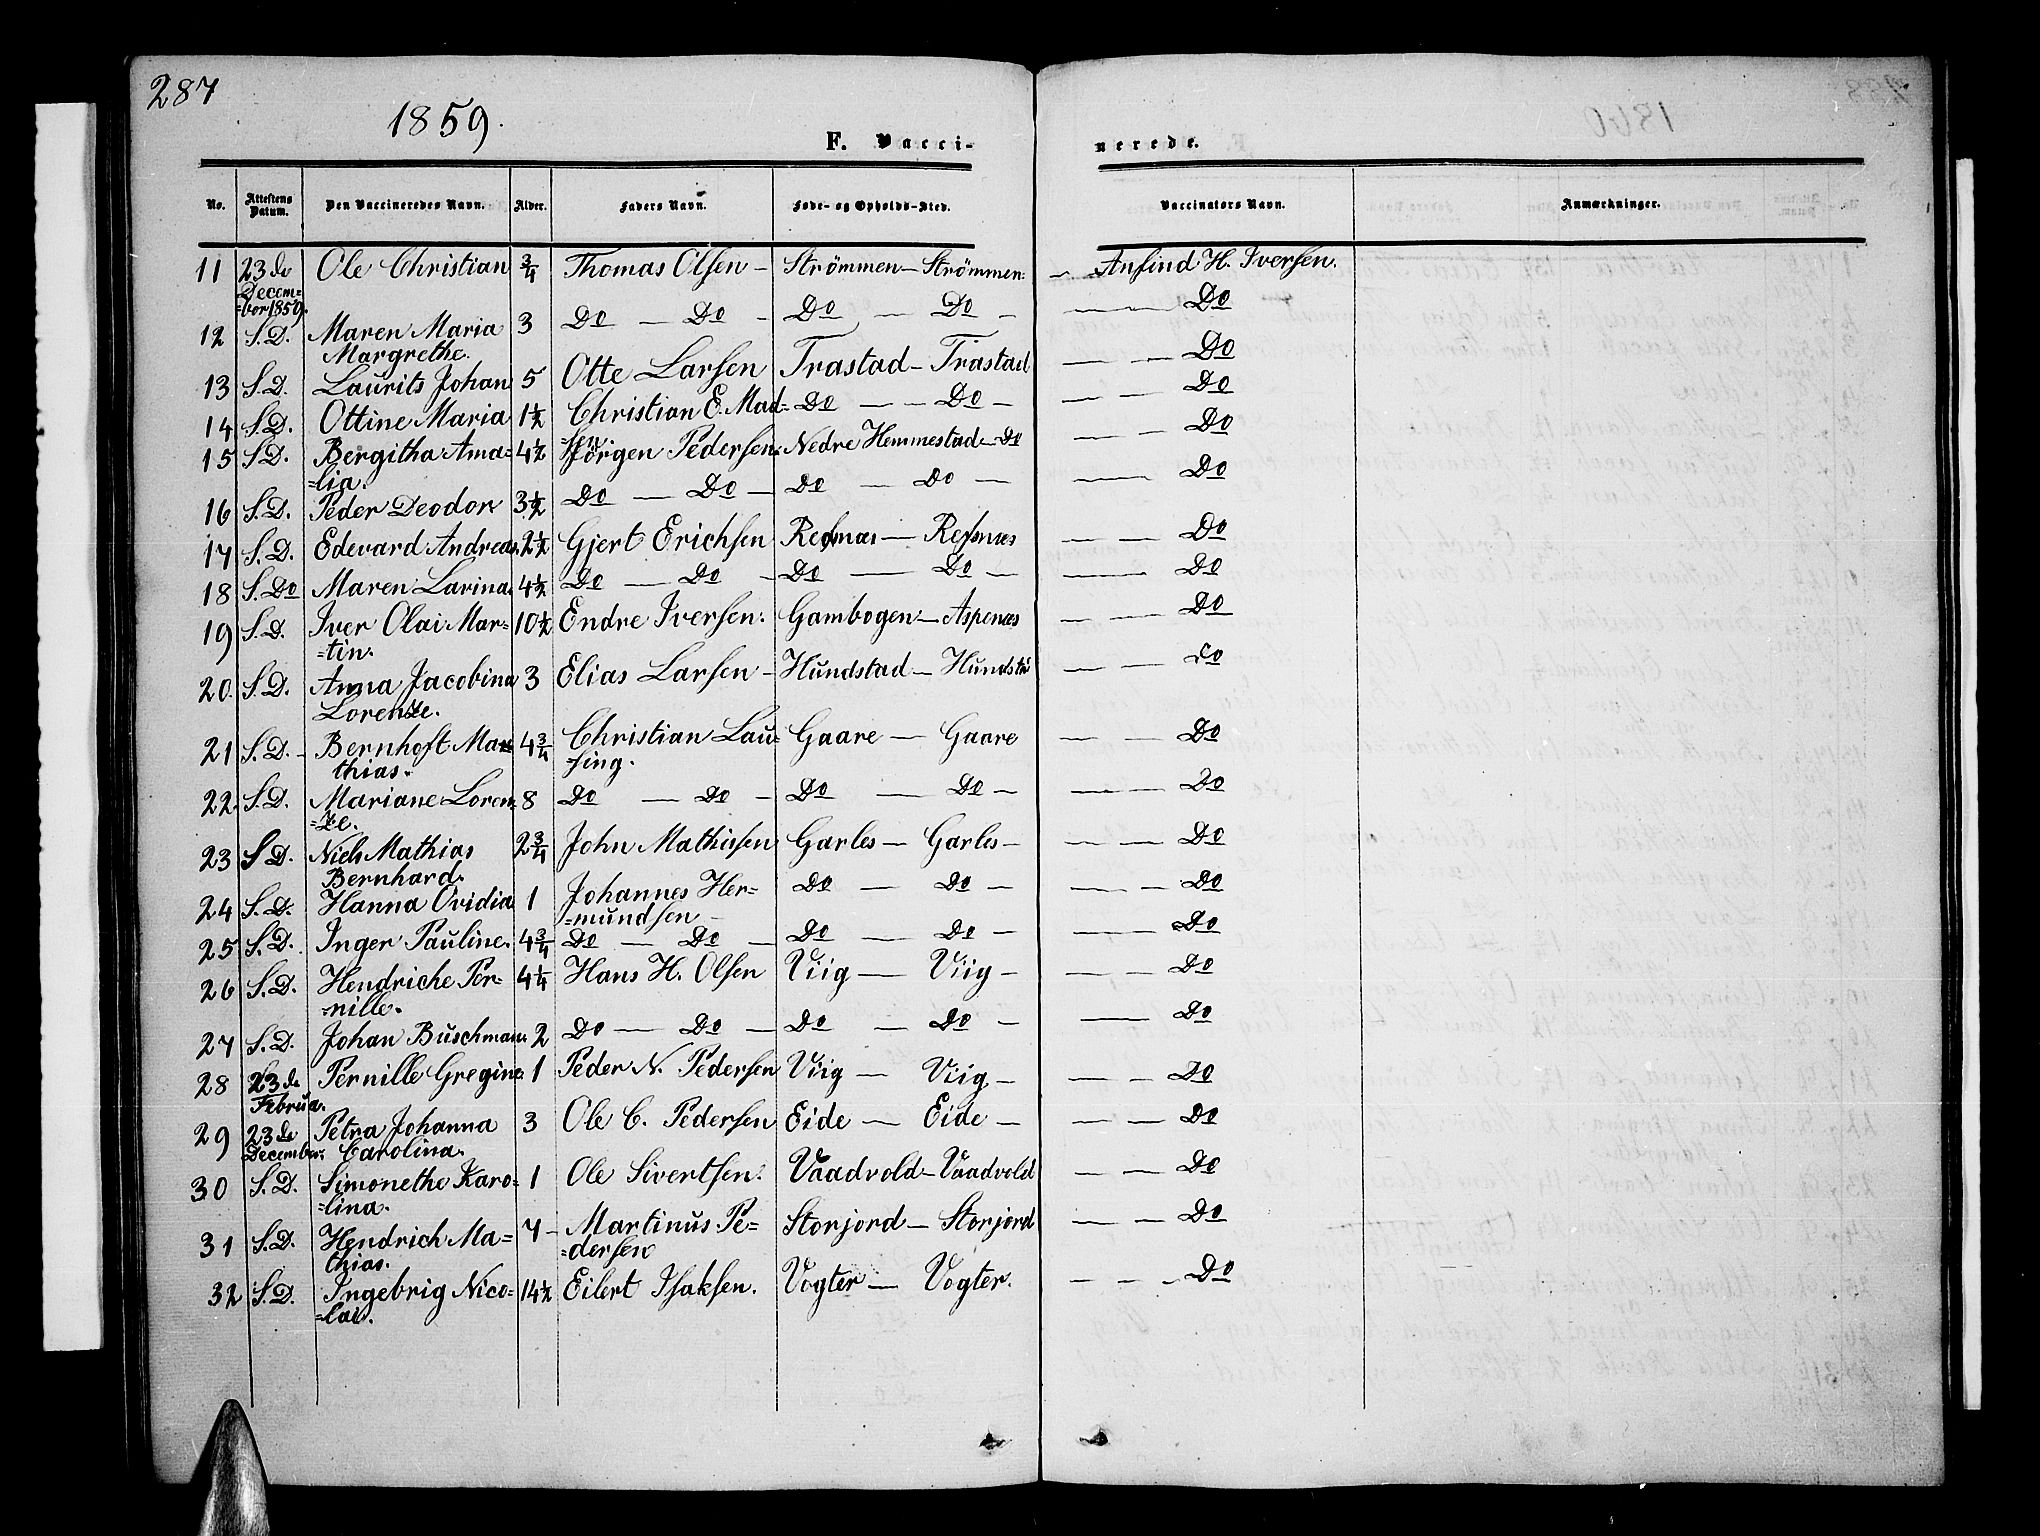 287
1859.
F. Vacci-
nerede.
No. Attestens Datum. Den Vaccineredes Navn. Alder. Faders Navn. Føde- og Opholds-Sted. Vaccinators Navn. Anmærkninger.
11 23de Ole Christian 3/4 Thomas Olsen - Strömmen - Strömmen - Anfind H. Iversen.
Decem=
=ber 1859.
12 S.D. Maren Maria 3 Do - Do - Do - Do - Do
Margrethe.
13 S.D. Laurits Johan 5 Otte Larsen Trastad - Trastad — - Do
14 S.D. Ottine Maria 1 1/2 Christian E. Mad= Do - - Do - - - Do
=sen
15 S.D. Bergitha Ama= 4 1/2 Jörgen Pedersen. Nedre Hemmestad - Do — - Do
=lia.
16 S.D. Peder Deodor 3 1/2 Do - Do - Do - Do - — - Do
17 S.D. Edevard Andreas. 2 1/2 Gjert Erichsen Refsnæs - Refsnæs — - Do
18 S. Do Maren Larina. 4 1/2 Do - Do - Do - Do - — Do
19 S.D. Iver Olai Mar= 10 1/2 Endre Iversen. Gambogen - Aspenæs - — Do
=tin.
20. S.D. Anna Jacobina 3 Elias Larsen - Hundstad - Hundsta — - Do
Lorenze.
21 S.D. - Bernhoft Ma= 4 3/4 Christian Lau= Gaare - Gaare — - Do
thias. =sing.
22. S.D. Mariane Loren= 8 Do - Do - Do - Do - — - Do
=ze.
23 S.D. Niels Mathias 2 3/4 John Mathisen Garles - Garles - — - Do
Bernhard.
24 S.D. Hanna Ovidia 1 Johannes Her= Do - Do - — - Do
=mundsen -
25 S.D. Inger Pauline. 4 3/4 Do - Do - Do - Do - — Do
26 S.D. Hendriche Per= 4 1/4 Hans H. Olsen Viig - Viig - — - Do
=nille.
27 S.D. Johan Buschman. 2 Do - Do - Do - Do - — Do
28 23de Pernille Gregine. 1 Peder N. Pedersen Viig - Viig - — - Do
Februa.
29 23de Petra Johanna 3 Ole C. Pedersen Eide - Eide - — - Do
December. Carolina.
30 S.D. Simonethe Karo= 1 Ole Sivertsen. Vaadvold - Vaadvold - - Do
=lina.
31 S.D. Hendrich Ma= 7 - Martinus Pe= Storjord - Storjord — - Do
thias. =dersen
32 S.D. Ingebrig Nico= 14 1/2 Eilert Isaksen. Vogter - Vogter. - - - Do
=lai.